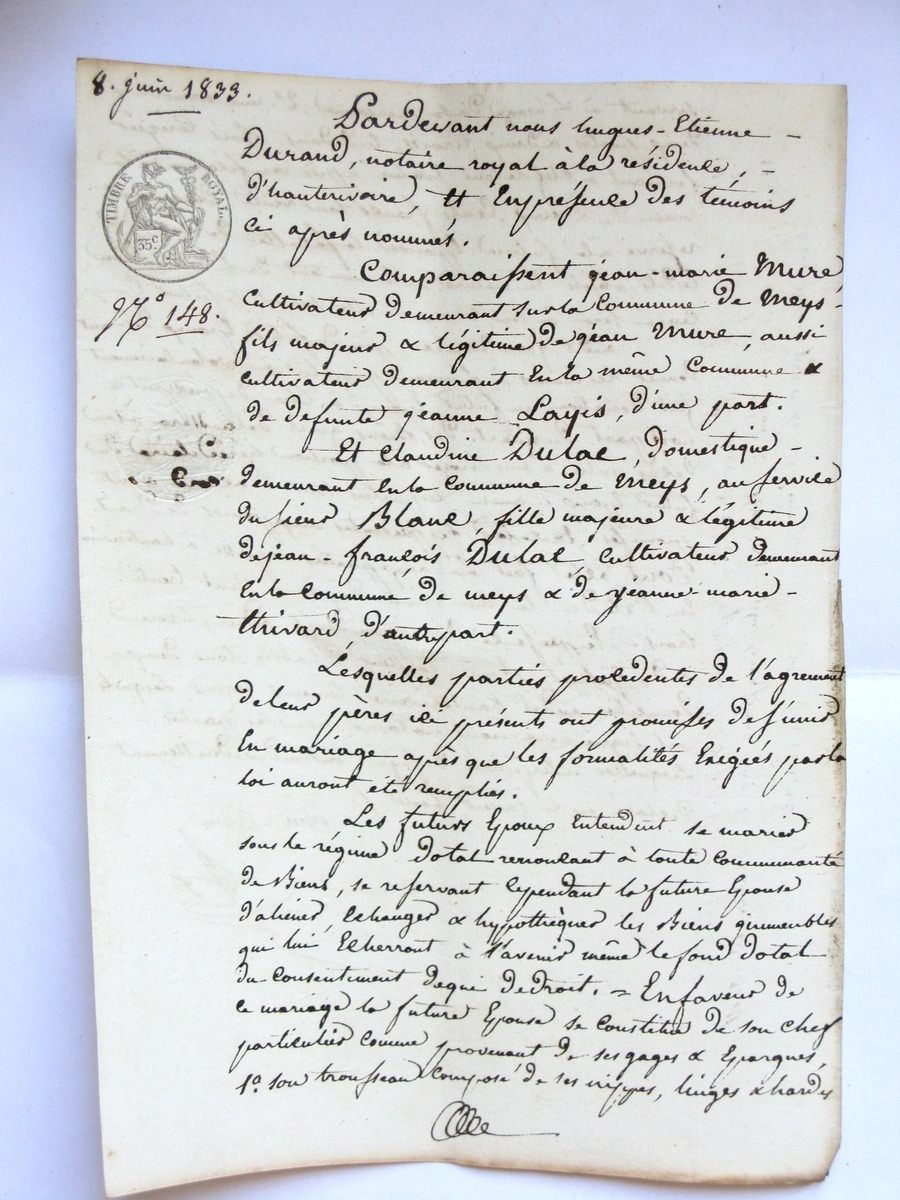 8. juin 1833.
Pardevant nous hugues-Etienne -
Durand, notaire royal à la résidence, -
d'hauterivoire, et En présence des témoins
ci après nommés.
TIMBRE ROYAL.
35c.
N.° 148.
Comparaissent jean-marie Mure
cultivateur demeurant sur la commune de Meys-
fils majeur & légitime de jean Mure, aussi
cultivateur demeurant En la même commune &
de defunte jeanne Layis, d'une part.
Et claudine Dulac, domestique -
demeurant En la commune de Meys, au service
du sieur Blanc, fille majeure & légitime
de jean-françois Dulac, cultivateur demeurant
En la commune de meys & de jeanne-marie -
thivard, d'autre part.
Lesquelles parties procédentes de l'agrément
de leur pères ici présents ont promises de s'unir
En mariage après que les formalités Exigées par la
loi auront été remplies.
Les futurs Epoux entendent se marier
sous le régime dotal renonçant à toute communauté
de Biens, se réservant cependant la future Epouse
d'aliéner, Echanger & hypothéquer les Biens immeubles
qui lui Echerront à l'avenir même le fond dotal
du consentement de qui de droit. = En faveur de
ce mariage la future Epouse se constitue de son chef
particulier comme provenant de ses gages & Epargnes,
1.° son trousseau composé de ses nippes, linges & hardes